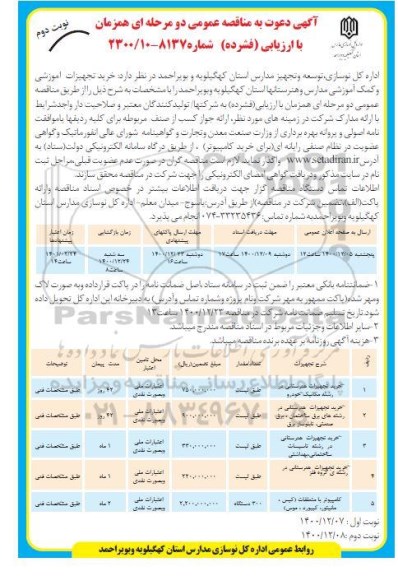 آگهی دعوت به مناقصه عمومی دو مرحله ای همزمان
با ارزیابی (فشرده) شماره ۸۱۳۷-۲۳۰۰/۱۰
نوبت دوم
اداره کل نوسازی،توسعه وتجهیز مدارس استان کهگیلویه و بویراحمد در نظر دارد، خرید تجهیزات آموزشی
وکمک آموزشی مدارس وهنرستانها استان کهگیلویه وبویراحمد را با مشخصات به شرح ذیل رااز طریق مناقصه
عمومی دو مرحله ای همزمان با ارزیابی(فشرده) به شرکتها/ تولیدکنندگان معتبر و صلاحیت دار واجدشرایط
با ارائه مدارک شرکت در زمینه های مورد نظر، ارائه جواز کسب از صنف مربوطه برای کلیه ردیفها یاموافقت
نامه اصولی و پروانه بهره برداری از وزارت صنعت معدن وتجارت و گواهینامه شورای عالی انفورماتیک و گواهی
عضویت در نظام صنفی رایانه ای(برای خرید کامپیوتر) ، از طریق درگاه سامانه الکترونیکی دولت(ستاد) به
آدرس www.setadiran.ir واگذار نماید.لازم است مناقصه گران در صورت عدم عضویت قبلی،مراحل ثبت
نام در سایت مذکور ودریافت گواهی امضای الکترونیکی را جهت شرکت در مناقصه محقق سازند.
اطلاعات تماس دستگاه مناقصه گزار جهت دریافت اطلاعات بیشتر در خصوص اسناد مناقصه وارائه
پاکت(الف)(تضمین شرکت در مناقصه)از طریق آدرس:یاسوج- میدان معلم- اداره کل نوسازی مدارس استان
کهگیلویه وبویراحمدبه شماره تماس:۳۳۲۳۵۴۳۶-۰۷۴ انجام می پذیرد.
ارسال به صفحه اعلان عمومی مهلت دریافت اسناد مهلت ارسال پاکتهای پیشنهادی زمان بازگشایی زمان اعتبار پیشنهادها
پنجشنبه ۱۴۰۰/۱۲/۰۵ ساعت۱۲ دوشنبه ۱۴۰۰/۱۲/۰۹ ساعت۱۷ دوشنبه ۱۴۰۰/۱۲/۲۳ سه شنبه ۱۴۰۰/۱۲/۲۴ ساعت۸
۱-ضمانتنامه بانکی معتبر را ضمن ثبت در سامانه ستاد اصل ضمانت نامه را در پاکت قرارداده وبه صورت لاک
ومهر شده(پاکت ممهور به مهر شرکت ونام پروژه وشماره تماس وآدرس) به دبیرخانه این اداره کل تحویل داده
شود تاریخ تسلیم ضمانت نامه شرکت در مناقصه ۱۴۰۰/۱۲/۲۳
۲-سایر اطلاعات وجزئیات مربوط در اسناد مناقصه مندرج میباشد.
۳-هزینه آگهی روزنامه بر عهده برنده مناقصه میباشد.
ردیف شرح تجهیزات تعداد/مقدار مبلغ تضمین(ریال) محل تامین اعتبار مدت پیمان توضیحات
۱ خرید تجهیزات هنرستانی در رشته مکانیک خودرو طبق لیست اعتبارات ملی وبصورت نقدی طبق مشخصات فنی
۲ خرید تجهیزات هنرستانی در رشته های برق ساختمان ، برق صنعتی، تابلوساز برق طبق لیست اعتبارات ملی وبصورت نقدی طبق مشخصات فنی
۳ خرید تجهیزات هنرستانی در رشته تاسیسات ساختمانی،بهداشتی طبق لیست ۳۳۰,۰۰۰,۰۰۰ اعتبارات ملی وبصورت نقدی ۱ ماه طبق مشخصات فنی
۴ خرید تجهیزات هنرستانی در رشته ی گروه هنر طبق لیست اعتبارات ملی وبصورت نقدی ۱ ماه طبق مشخصات فنی
۵ کامپیوتر با متعلقات (کیس ، مانیتور، کیبورد ، موس) ۳۰۰ دستگاه ۲,۲۰۰,۰۰۰,۰۰۰ اعتبارات ملی وبصورت نقدی ۲ ماه طبق مشخصات فنی
نوبت اول : ۱۴۰۰/۱۲/۰۷
نوبت دوم :۱۴۰۰/۱۲/۰۸
روابط عمومی اداره کل نوسازی مدارس استان کهگیلویه وبویراحمد